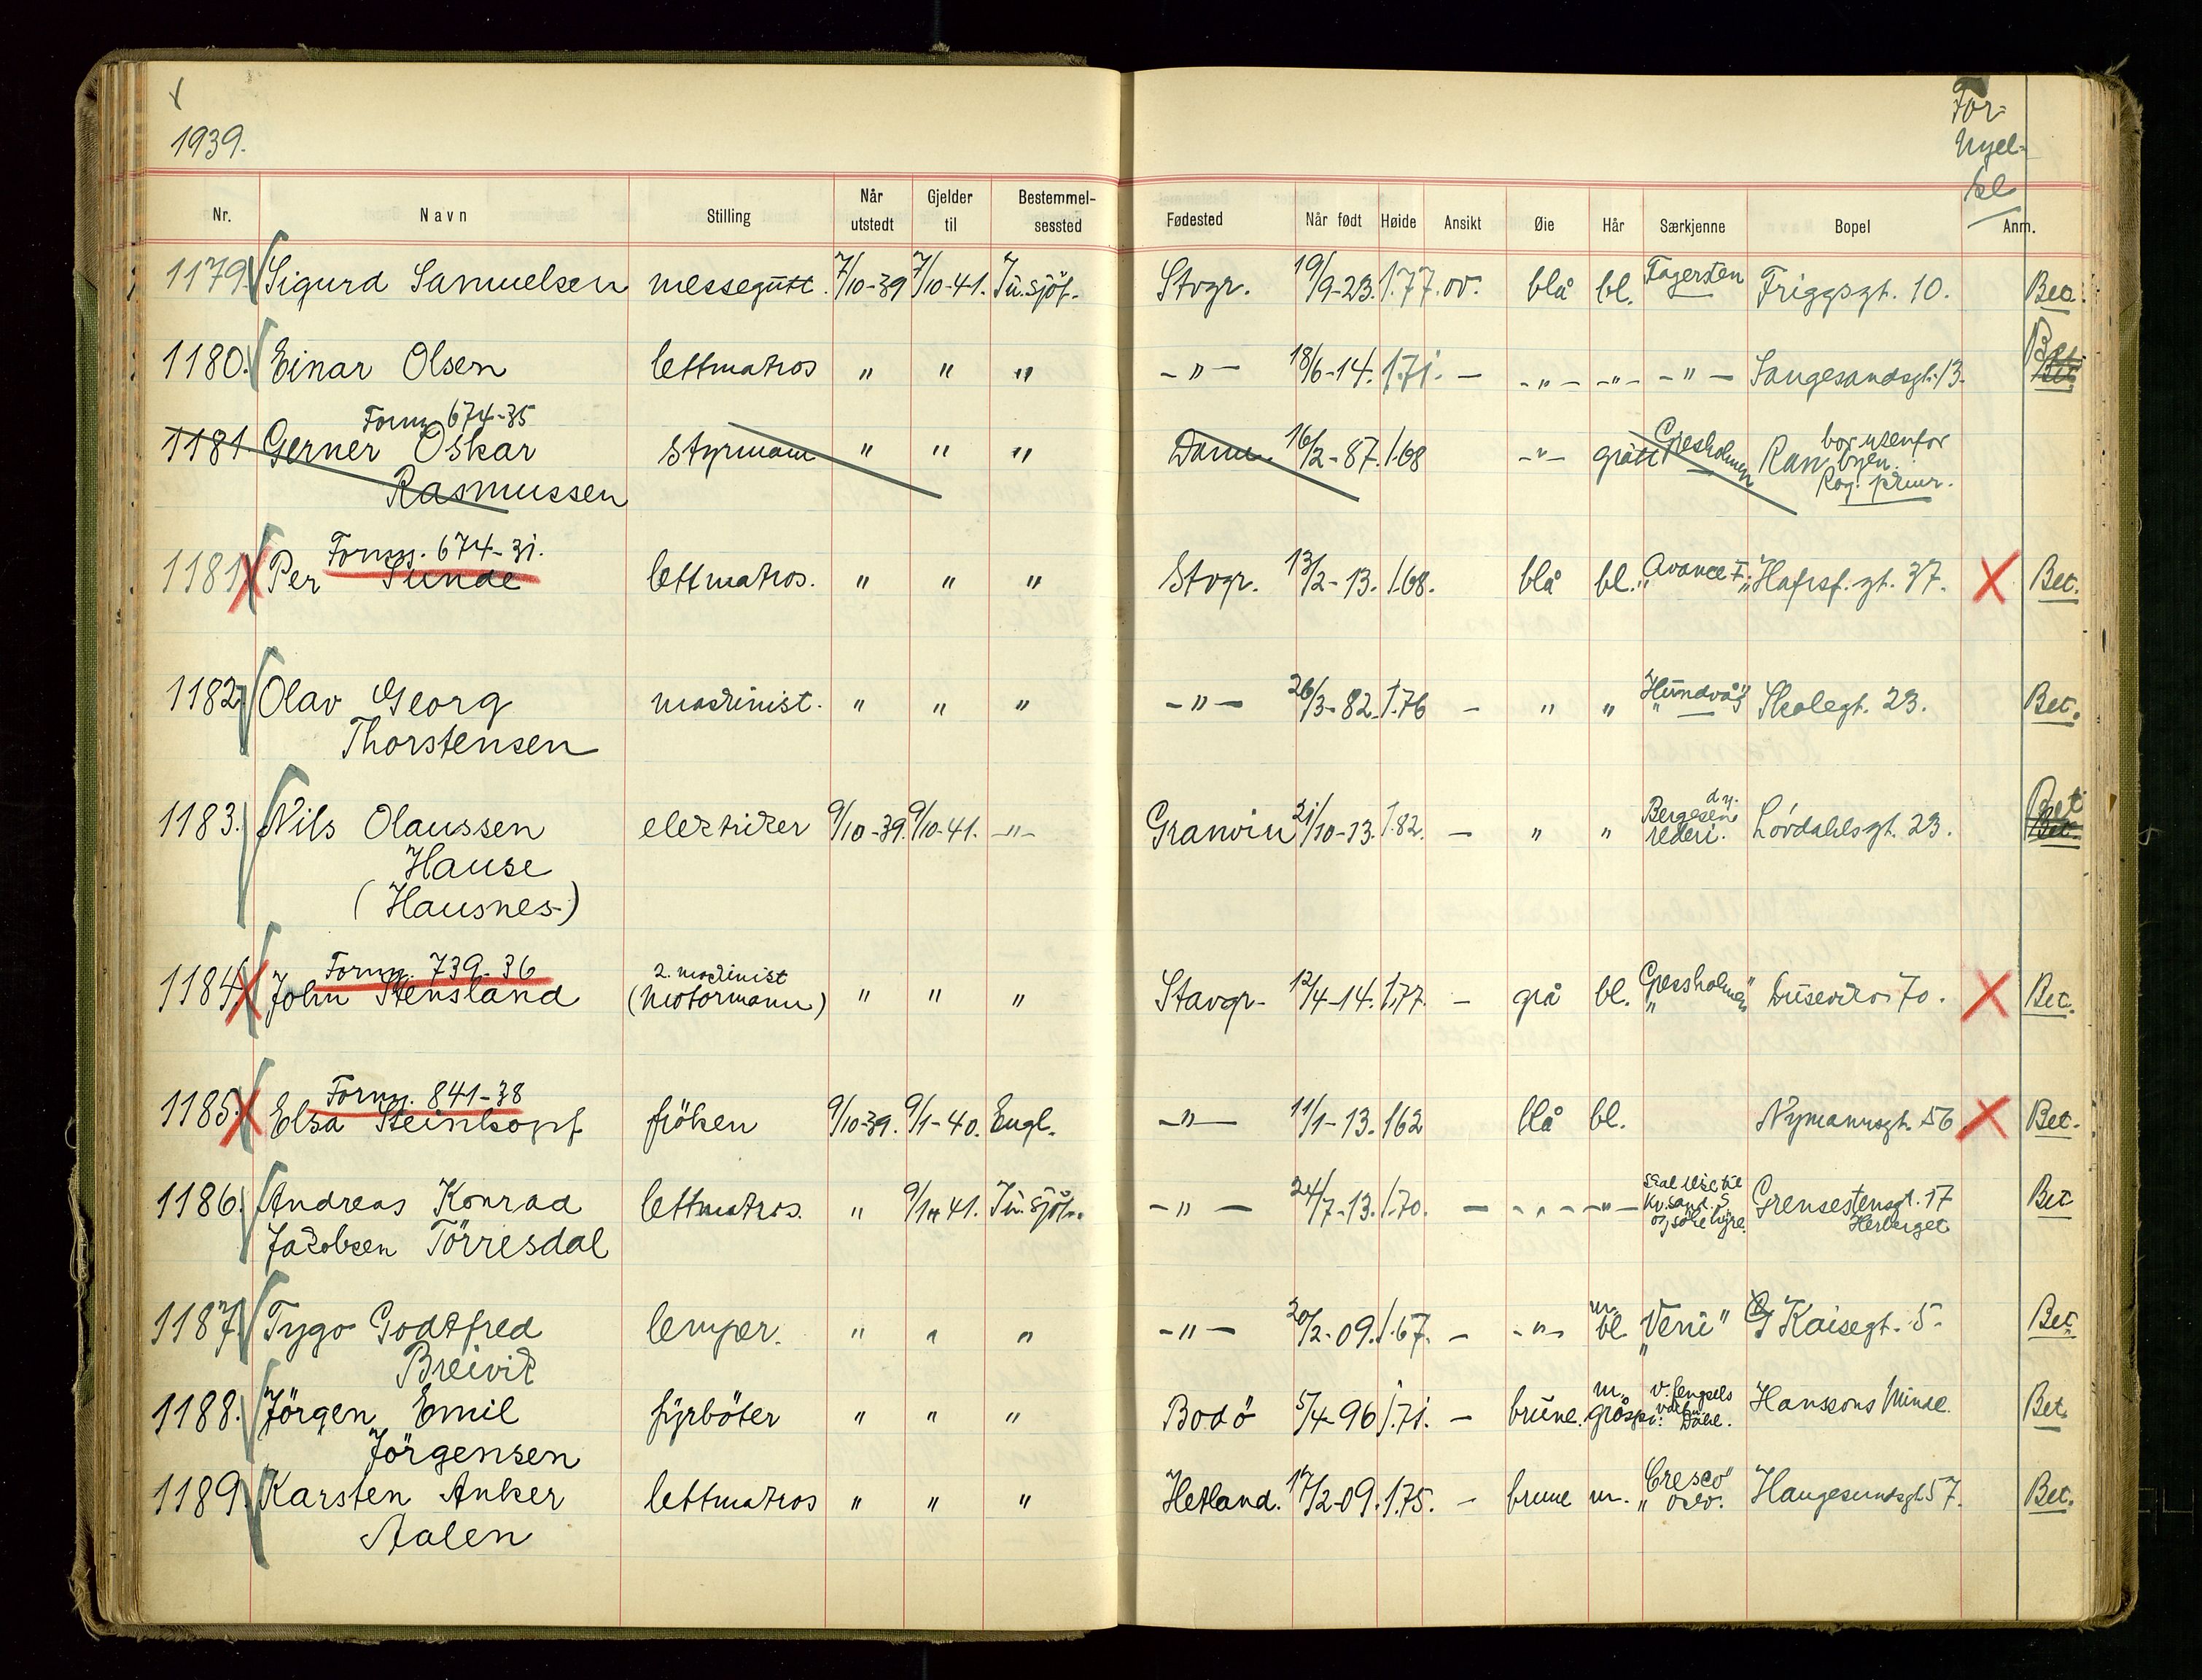 1939.
For-
nyel-
se
Nr. Navn Stilling Når utstedt Gjelder til Bestemmel-sessted Fødested Når født Høide Ansikt Øie Hår Særkjenne Bopel Anm.
1179. Sigurd Samuelsen messegutt. 7/10-39 7/10-41. Tu. sjöf. Stvgr. 19/9-23. 1.77. ov. blå bl. Fagersten Friggsgt. 10. Bet.
1180. Einar Olsen lettmatros " " " -"- 18/6-14. 1.71. - -"- -"- -"- Haugesandsgt. 13. Bet.
Fornyr. 674-35
1181. Gerner Oskar styrmann " " " Danm. 16/2-87. 1.68 -"- grått Gresholmen Ran bor utenfor
Rasmussen byen.
Rog. privr.
Fornyr. 674-31.
1181 Per Sunde lettmatros. " " " Stvgr. 13/2-13. 1.68. blå bl. "Avance I" Hafrsf. gt. 37. X Bet.
1182. Olav Georg maskinist. " " " -"- 26/3-82. 1.76 - " " "Hundvåg" Skolegt. 23. Bet.
Thorstensen
1183. Nils Olaussen elektriker 9/10-39. 9/10-41. -"- Granvin 21/10-13. 1.82. - " " Bergesen d.y. rederi. Lövdahlsgt. 23. Bet.
Hause
(Hausnes)
Fornyr. 739-36
1184. John Stensland 2. maskinist (motormann) " " " Stavgr. 12/4-14. 1.77. - grå bl. "Gressholmen" Dusevikv. 70. X Bet.
Fornyr. 841-38
1185. Elsa Steinkopf fröken 9/10-39. 9/1-40. Engl. -"- 11/1-13. 162 blå bl. Nymannsgt. 56 X Bet.
1186. Andreas Konrad lettmatros. " 9/10-41. Tu. sjöf. -"- 24/7-13. 1.70. - -"- -"- skal reise til Kr.sand. S og söke hyre. Grensestensgt. 17 Bet
Jakobsen Törresdal Herberget
1187. Tygo Godtfred lemper. " " " -"- 20/2-09. 1.67. - -"- m. bl "Veni" G Kaisegt. 5. Bet.
Breivik
1188. Jörgen Emil fyrböter " " " Bodö 5/4-96 1.71. - brune. m. gråspr. v. fengsels Hanssons Minde. Bet.
Jörgensen
1189. Karsten Anker lettmatros " " " Hetland. 17/2-09. 1.75. - brune m. "Cresco" Oslo. Haugesundsgt. 57. Bet.
Aalen